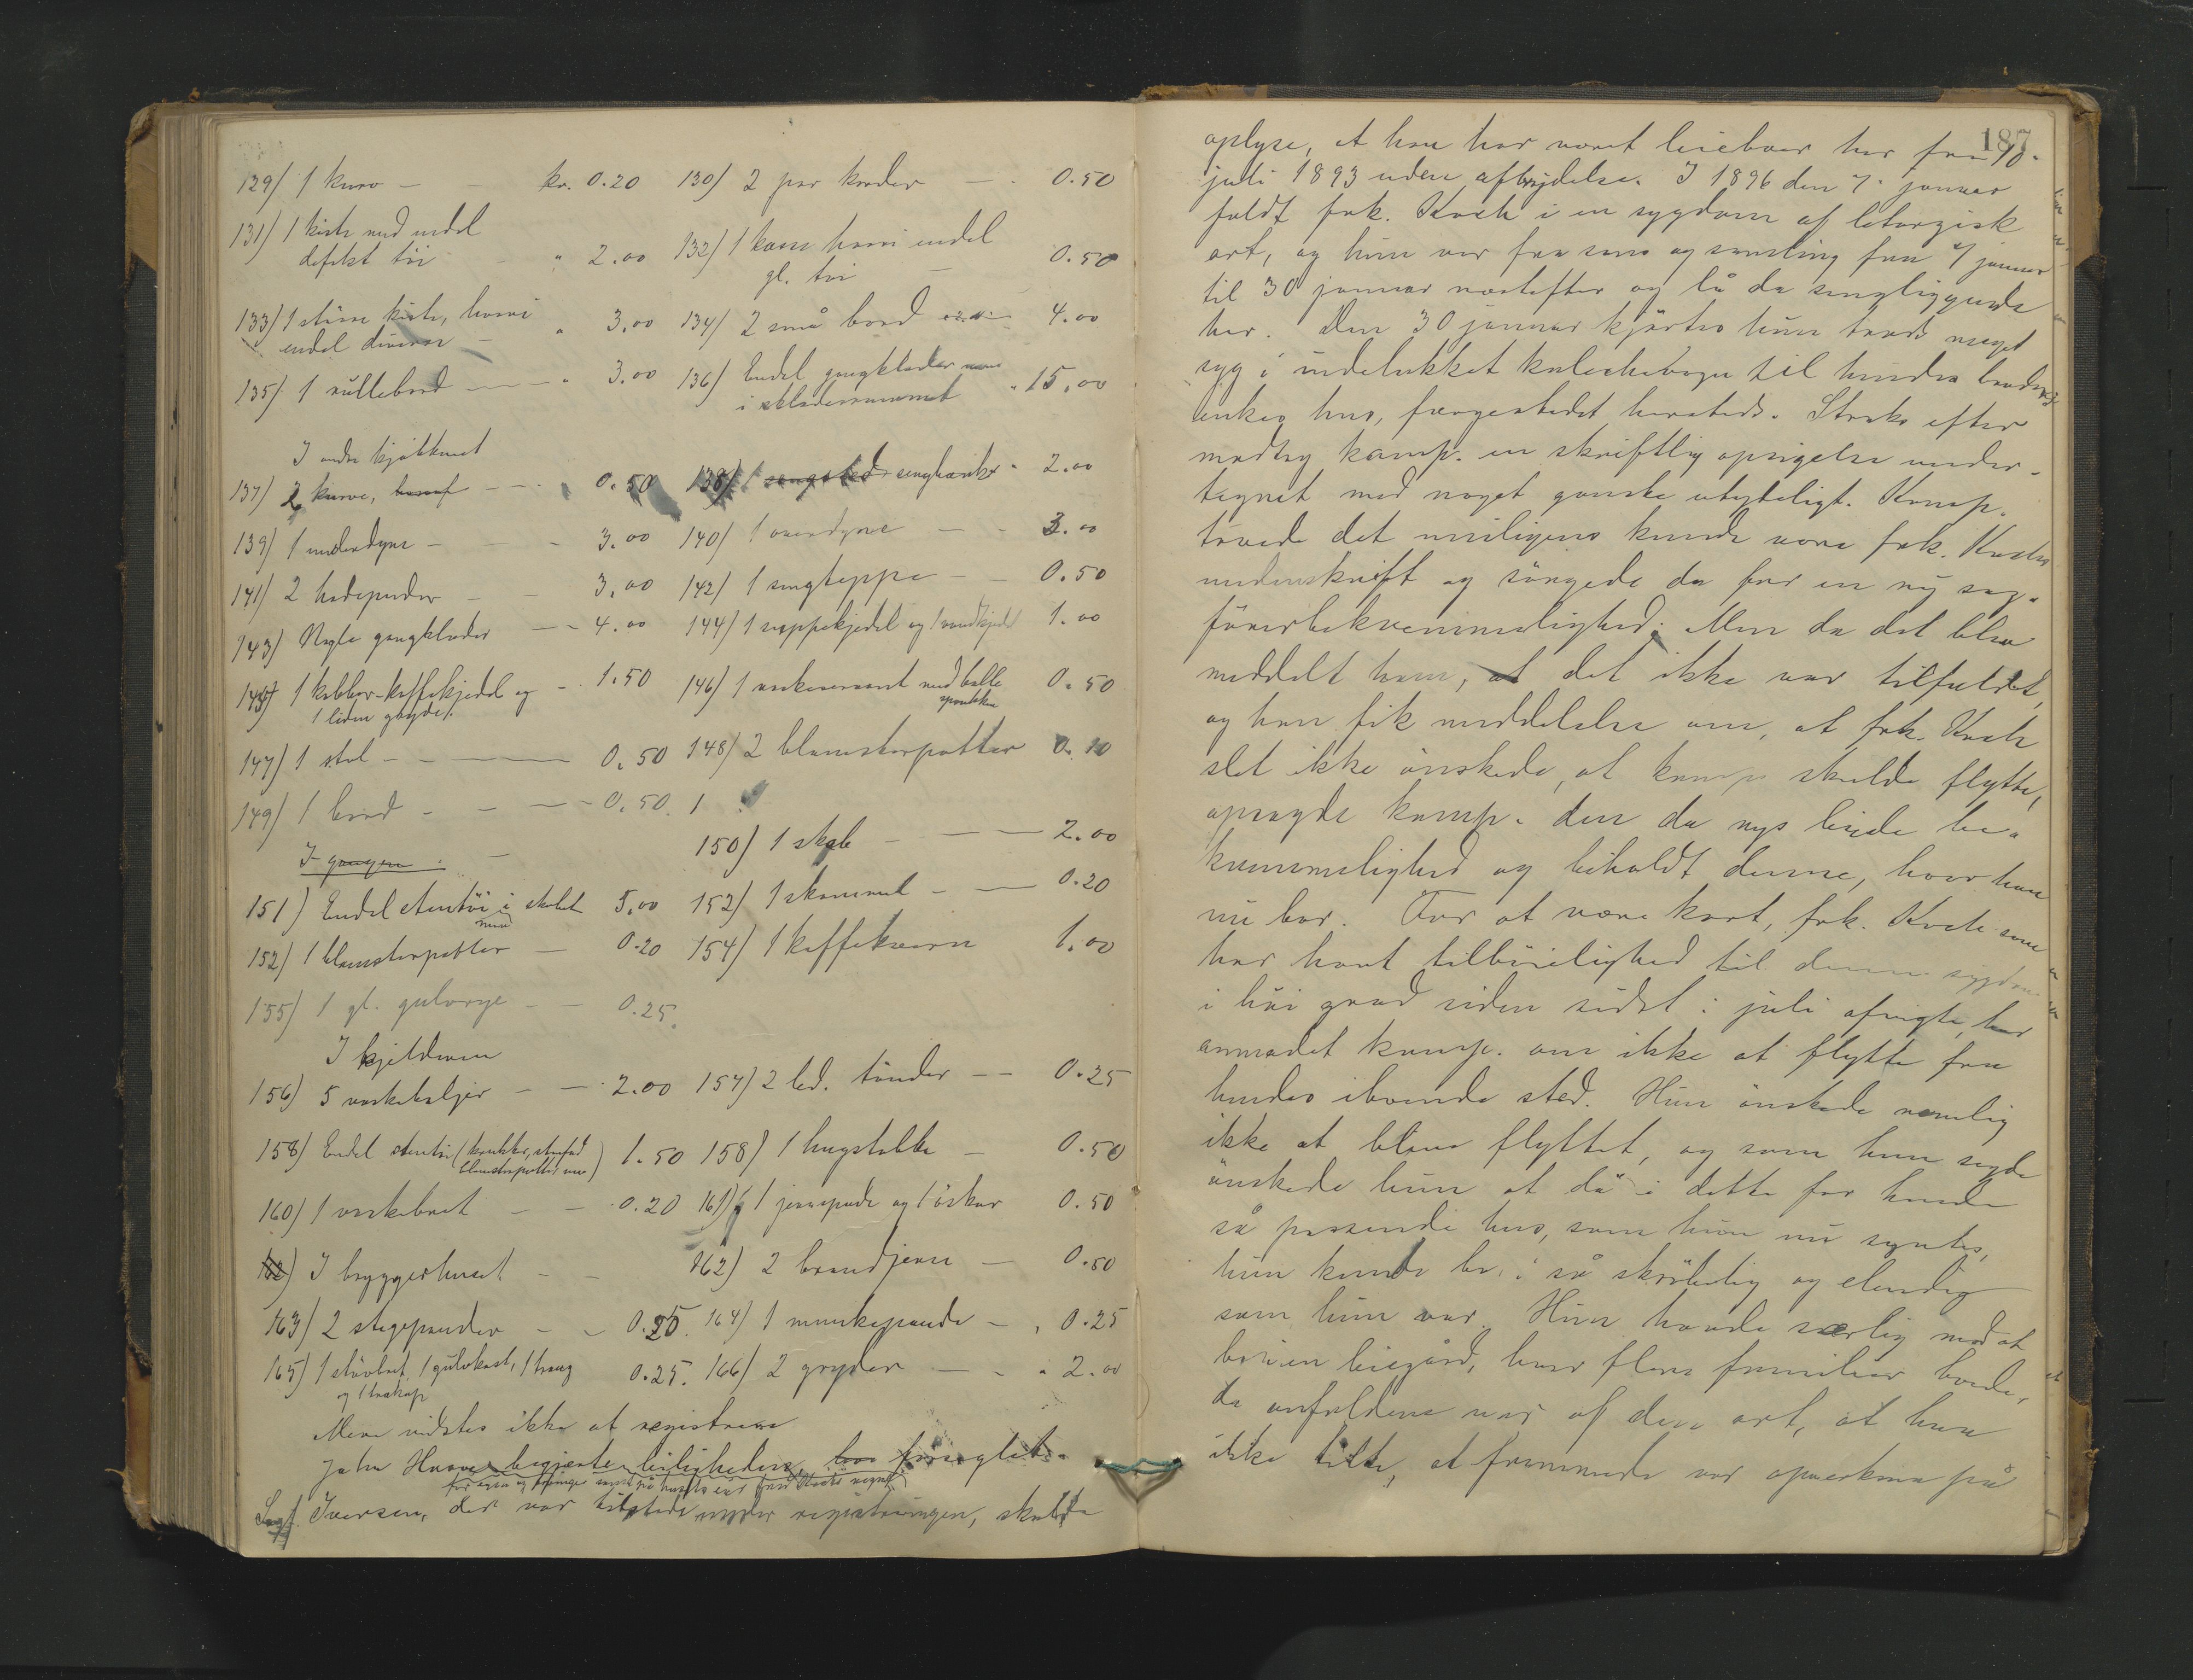 129) 1 kurv — kr. 0.20 130) 2 par karder — 0.50
131) 1 kiste med endel
defekt tøi " 2.00 132) 1 kasse hvori endel
gl. tøi — 0.50
133) 1 større kiste, hvori
endel diverse — " 3.00 134) 2 små bord 4.00
135) 1 rullebord — " 3.00 136) Endel gangklæder
i klæderummet " 15.00
I andre kjøkkenet
137) 2 kurve, — 0.50 138) 1 sengested sengbænk " 2.00
139) 1 underdyne — 3.00 140) 1 overdyne — 3.00
141) 2 hodeputer — 3.00 142) 1 sengteppe — 0.50
143) Nogle gangklæder — 4.00 144) 1 suppekjedel og 1 vandkjedel 1.00
145) 1 kobber-kaffekjedel og — 1.50 146) 1 med balle 0.50
1 liden gryde.
147) 1 stol — 0.50 148) 2 blomsterpotter 0.10
149) 1 bord — 0.50. 1
I gangen.
150) 1 skab — 2.00
151) Endel stentøi i skabet 5.00 152) 1 skammel — 0.20
152) 1 blomsterpotter — 0.20 154) 1 kaffekværn 1.00
155) 1 gl. — 0.25.
I kjelderen
156) 5 vaskebaljer — 2.00 157) 2 led. tønder — 0.25
158) Endel stentøi (krukker, stenfad
blomsterpotter mm) 1.50 158) 1 hugstabbe — 0.50
160) 1 vaskebret — 0.20 161) 1 jernspade og 1 øskar 0.50
162) I bryggerhuset — 162) 2 brandjern — 0.50
163) 2 stegepander — 0.50. 164) 1 munkepande — " 0.25
165) 1 støvbret, 1 gulvkost, 1 traug 0.25. 166) 2 gryder — " 2.00
og 1 trakop
Mere vidstes ikke at registrere
John begjærte leiligheden
Sagf. Iversen, der var tilstede under registreringen, skulde
187
oplyse, at han har været leieboer her fra 10.
juli 1893 uden afbrydelse. I 1896 den 7. januar
faldt frk. Koch i en sygdom af letargisk
art, og hun var fra sans og samling fra 7 januar
til 30 januar næstefter og lå da sengliggende
her. Den 30 januar kjørtes hun trods meget
syg i indelukket kalechevogn til hendes broders
enkes hus, færgestedet hersteds. Straks efter
modtog komp. en skriftlig opsigelse under-
tegnet med noget ganske utydeligt. Komp.
troede det muligens kunde være frk. Kochs
underskrift og sørgede da for en ny sag-
førerbekvemmelighed. Men da det blev
meddelt ham, at det ikke var tilfældet,
og han fik meddelelse om, at frk. Koch
slet ikke ønskede, at komp. skulde flytte,
opsagde komp. den da nys leiede be-
kvemmelighed og beholdt denne, hvor han
nu bor. For at være kort, frk. Koch som
har havt tilbøielighed til denne sygdom
i høi grad siden sidst i juli afvigte, har
anmodet komp. om ikke at flytte fra
hendes iboende sted. Hun ønskede nemlig
ikke at blive flyttet, og som hun sagde
ønskede hun at dø i dette for hende
så passende hus, som hun nu syntes,
hun kunde bo i så skrøbelig og elendig
som hun var. Hun havde særlig mod at
bo i en leiegård, hvor flere familier boede,
da anfaldene var af den art, at hun
ikke likte, at fremmede var opmerksom på